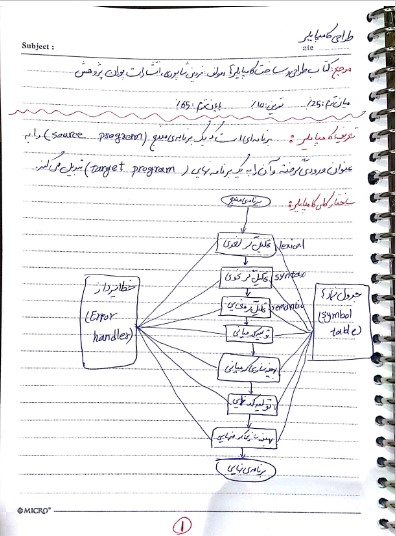 طراحی کامپایلر
Subject :
ate
مرجع: کتاب طراحی و ساخت کامپایلر، مولف: نسرین شاپوری، انتشارات پوران پژوهش
میان‌ترم: 25٪ تمرین: 10٪ پایان‌ترم: 65٪
تعریف کامپایلر: برنامه‌ای است که یک برنامه‌ی منبع (source program) را به
عنوان ورودی گرفته و آن را به یک برنامه نهایی (target program) تبدیل می‌کند
ساختار کلی کامپایلر:
برنامه‌ی منبع
تحلیل‌گر لغوی lexical
تحلیل‌گر نحوی syntax
تحلیل‌گر معنایی semantic
تولید کد میانی
بهینه‌سازی کد میانی
تولید کد نهایی
بهینه‌سازی کد نهایی
برنامه‌ی نهایی
خطاپرداز
(Error
handler)
جدول نمادها
(symbol
table)
MICRO
1